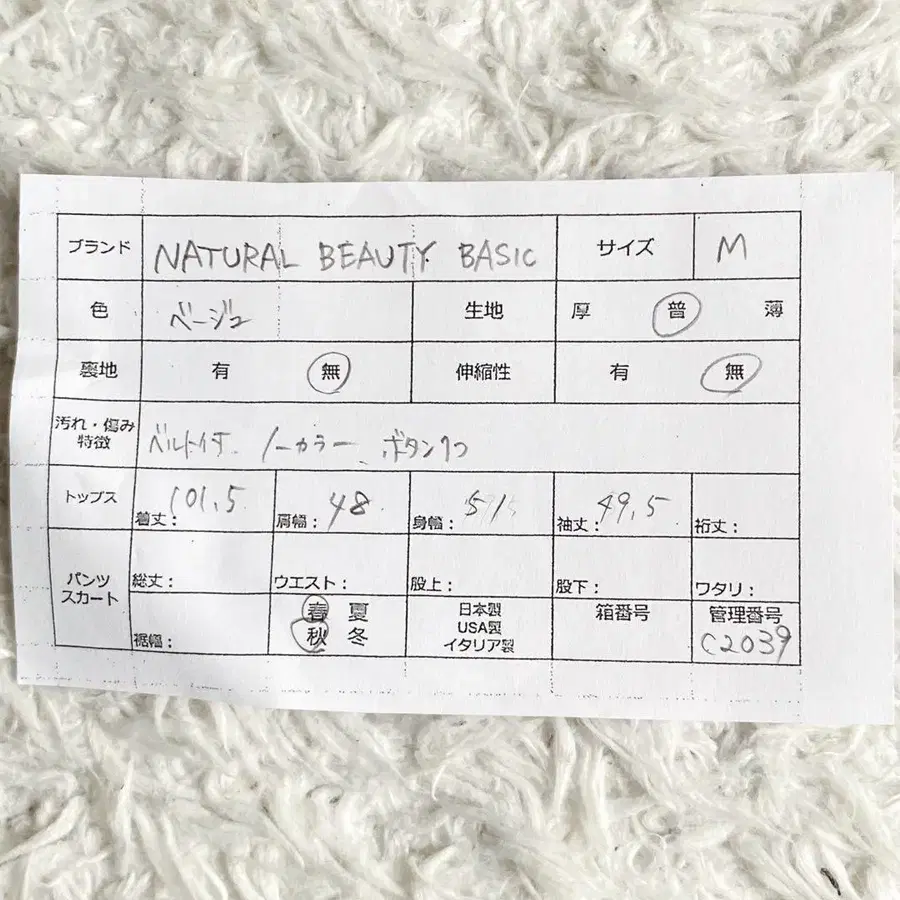 ブランド NATURAL BEAUTY BASIC サイズ M
色 ベージュ 生地 厚 普 薄
裏地 有 無 伸縮性 有 無
汚れ・傷み
特徴 ベルト付 ノーカラー、ボタン1つ
トップス 着丈: 101.5 肩幅: 48 身幅: 51 袖丈: 49.5 裄丈:
パンツ
スカート
総丈: ウエスト: 股上: 股下: ワタリ:
裾幅:
春 夏
秋 冬
日本製
USA製
イタリア製
箱番号
管理番号
C2039